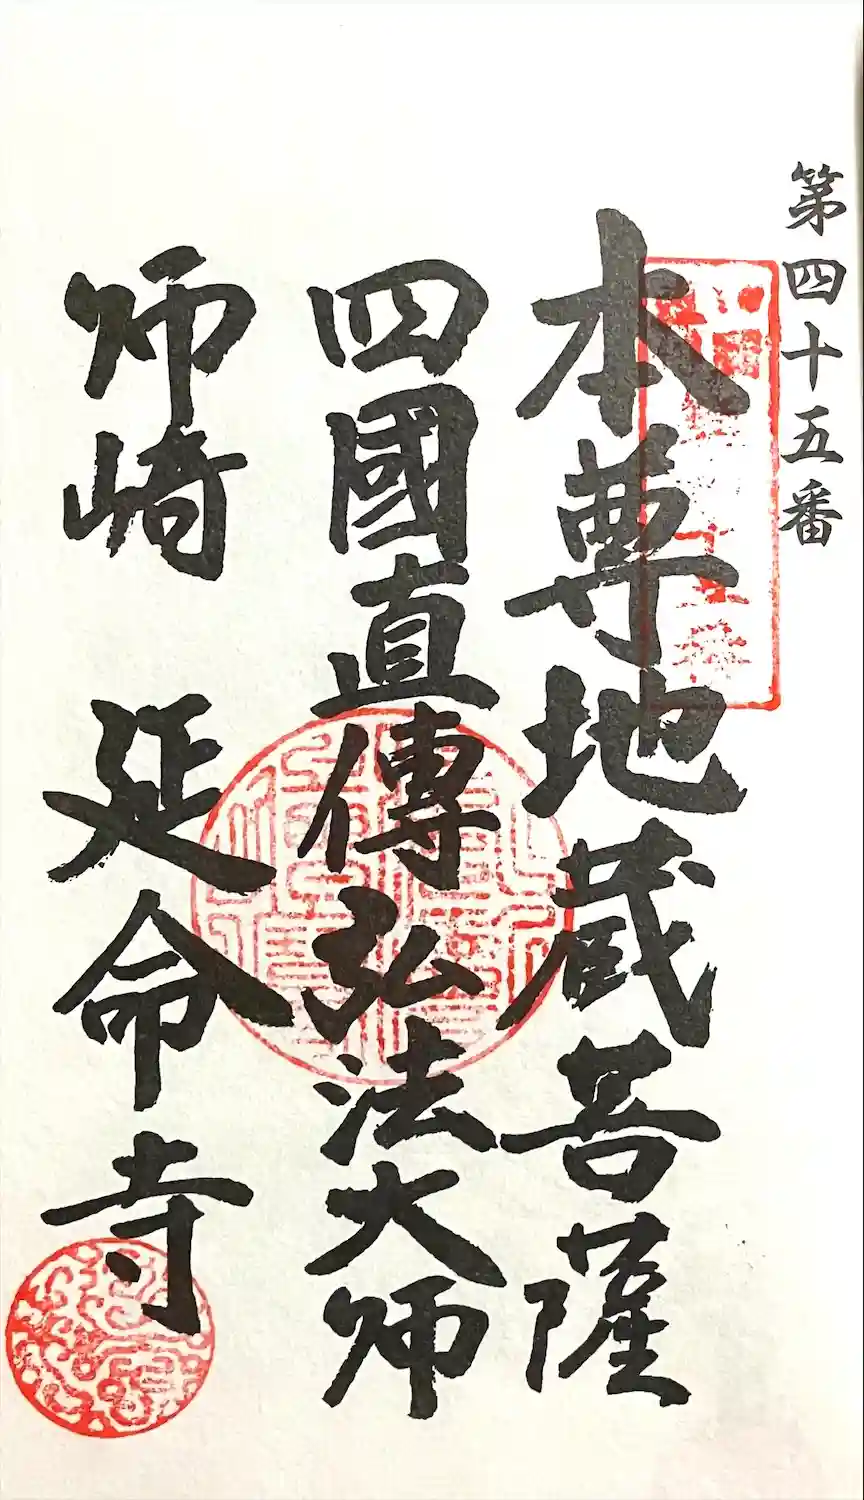 第四十五番
本尊地蔵菩薩
四國直傳弘法大师
师崎 延命寺